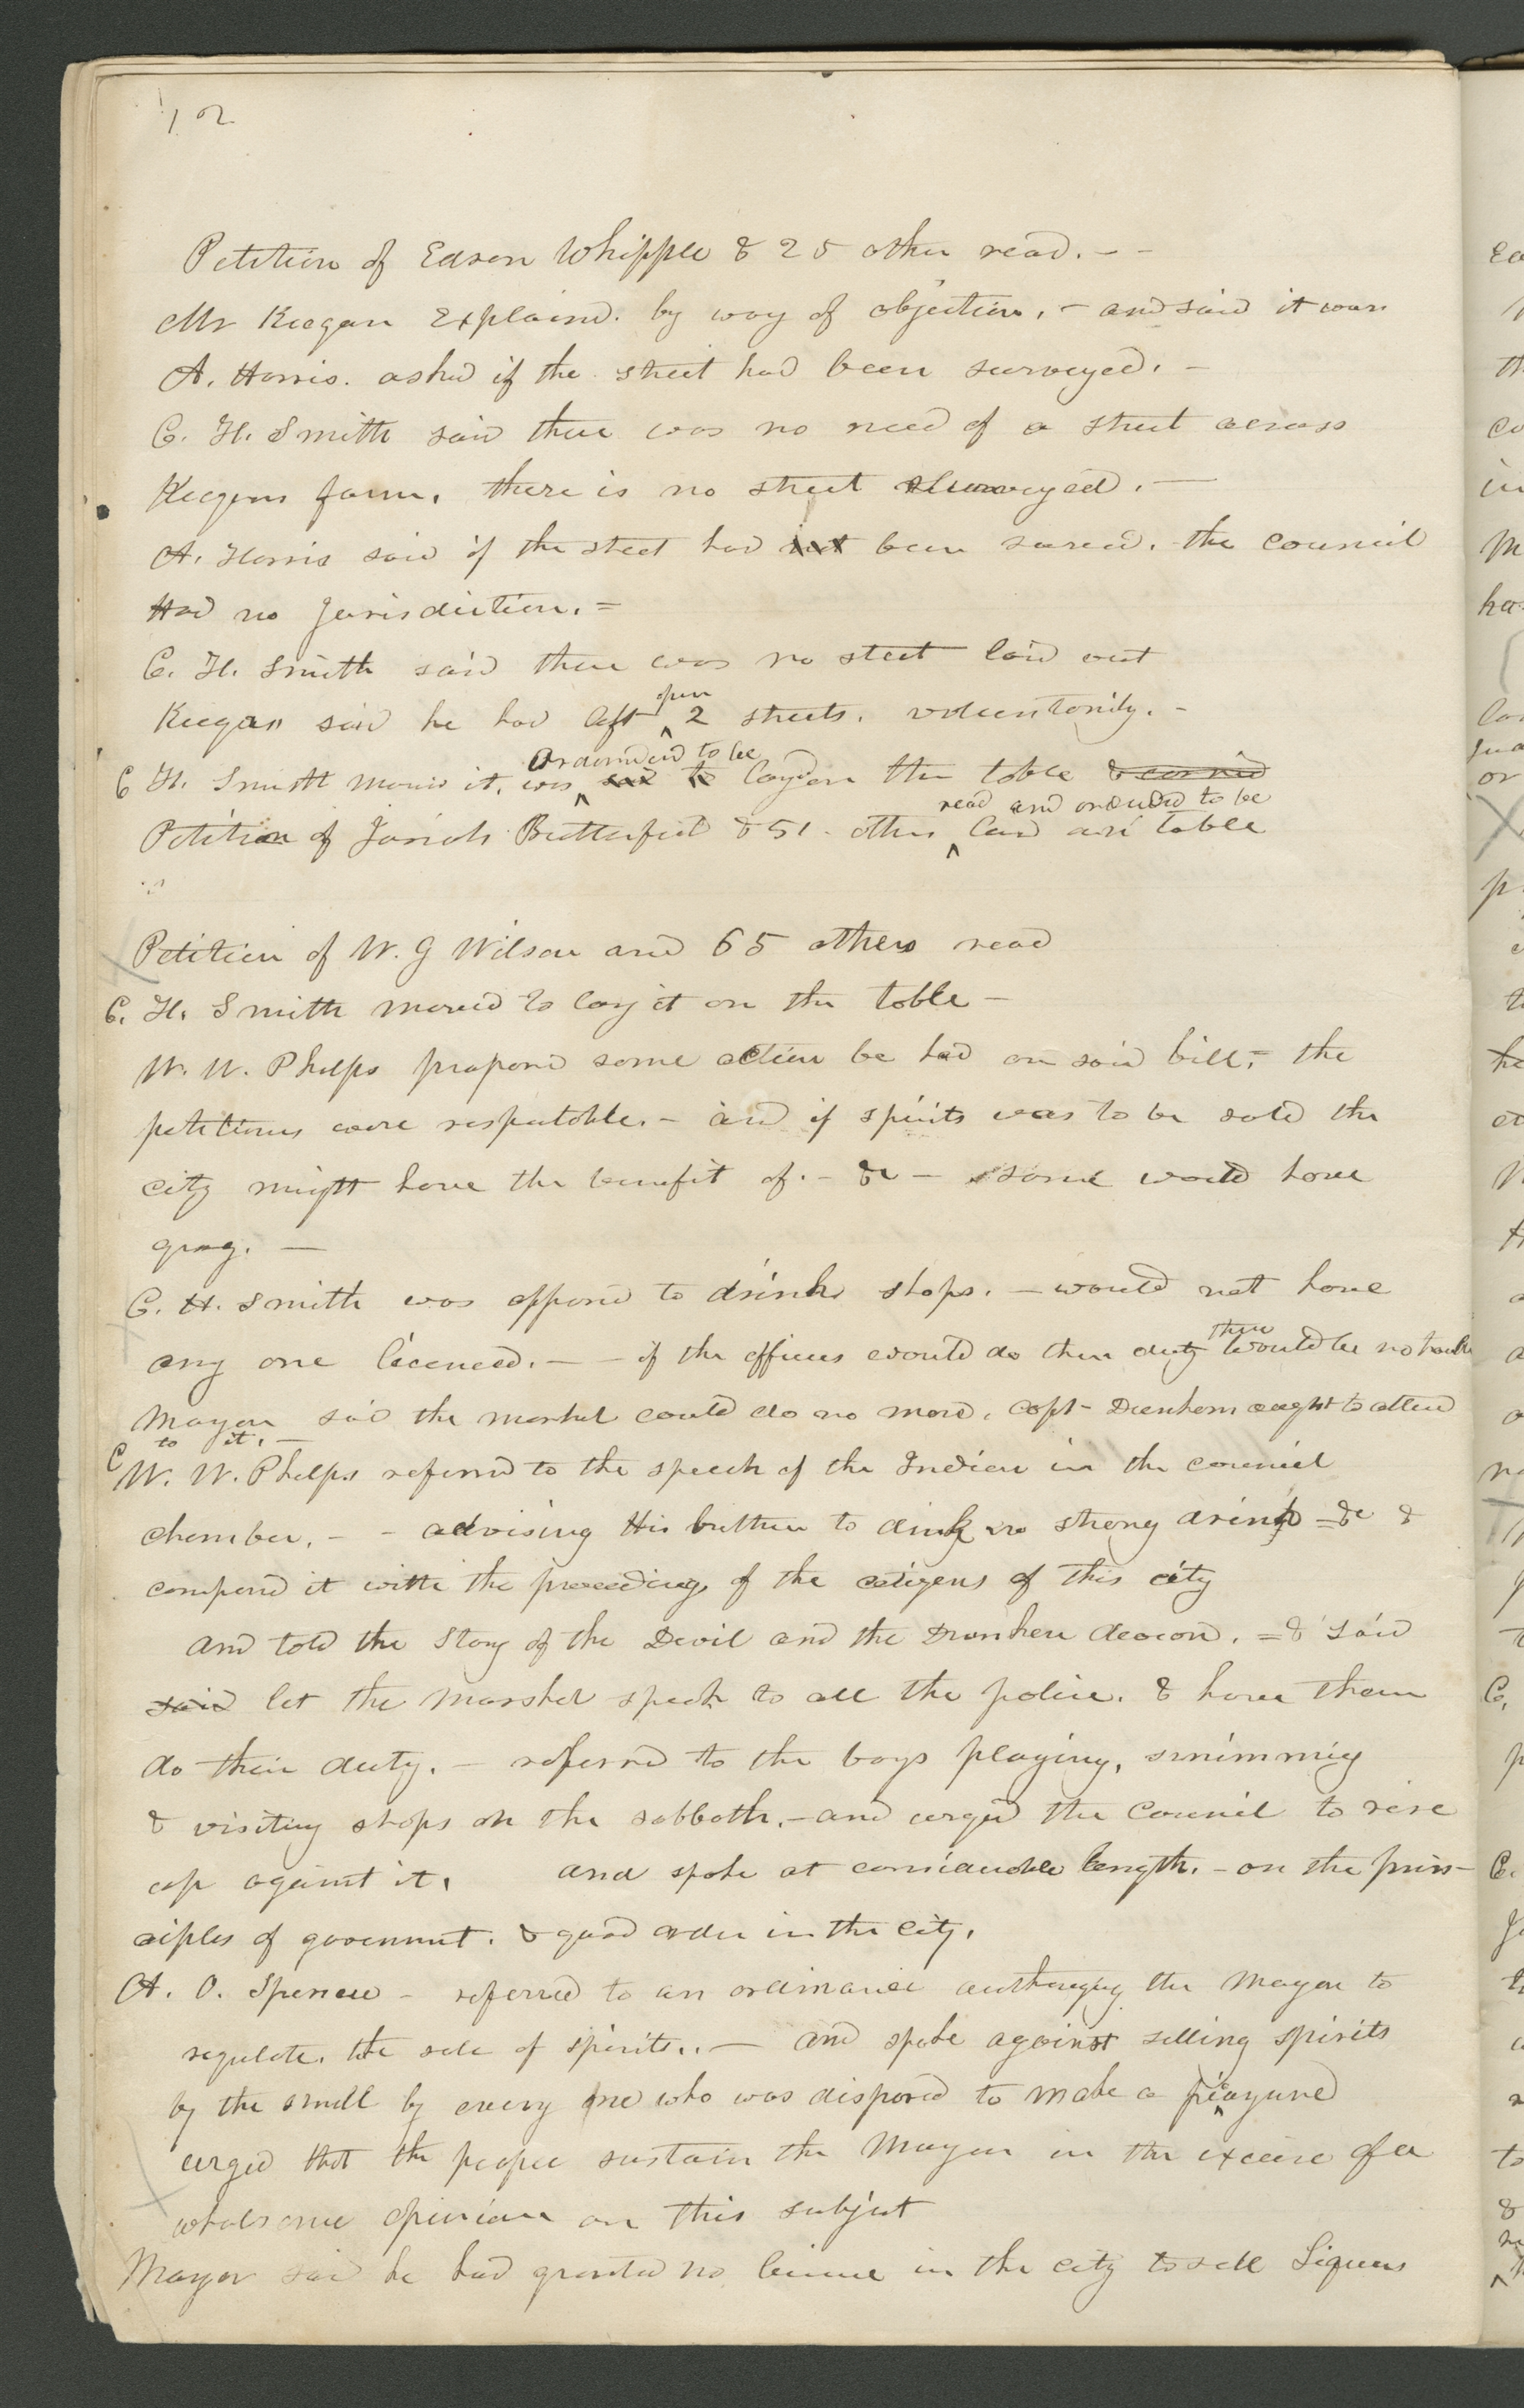 12
Petition of Edson Whipple & 25 other read. - -
Mr Keegan Explaind. by way of objection, - and said it was
A. Harris. asked if the street had been surveyed. -
C. H. Smith said there was no need of a street across
Keegans farm, there is no street surveyed. -
A. Harris said if the street had not been surved. the council
Had no Jurisdiction. =
C. H. Smith said there was no steet laid out
Keegan said he had left open 2 streets. voluntarily. -
C H. Smith movd it, was said to ordered to be lay on the table & carried
Petition of Josiah Butterfield & 51 - others read and ordered to be laid on table
Petition of W. G Wilson and 65 others read
C. H. Smith moved to lay it on the table -
W. W. Phelps proposd some action be had on said bill, - the
petitions were respectable. - and if spirits was to be sold the
city might have the benefit of. - &c - some would have
grog. -
C. H. Smith was opposed to drink shops. - would not have
any one licenced. - - if the officers would do their duty there would be no trouble
Mayor said the marshal could do no more, Capt - Dunham ought to attend
to it. -
C W. W. Phelps referred to the speech of the Indian in the council
chamber. - - advising His brethren to drink no strong drink = &c &
compared it with the proceedings of the citizens of this city
and told the Story of the Devil and the Drunken deacon. = & said
said let the Marshal speak to all the police. & have them
do their duty. - referred to the boys playing, swimming
& visiting shops on the sabbath. - and urged the Council to rise
up against it. and spoke at considerable length. - on the prin-
ciples of goverment. & good order in the city.
A. O. Spencer - referred to an ordinance authorizing the Mayor to
regulate. the sale of spirits. . - and spoke against selling spirits
by the small by every one who was disposed to make a picayune
urged that the people sustain the Mayor in the excise of a
wholsome opinion on this subject
Mayor said he had granted no licence in the city to sell Liquors